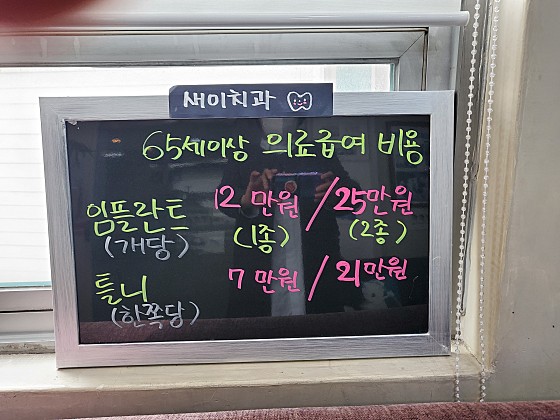 새이치과
65세이상 의료급여 비용
임플란트 12만원 / 25만원
(개당) (1종) (2종)
틀니 7만원 / 21만원
(한쪽당)